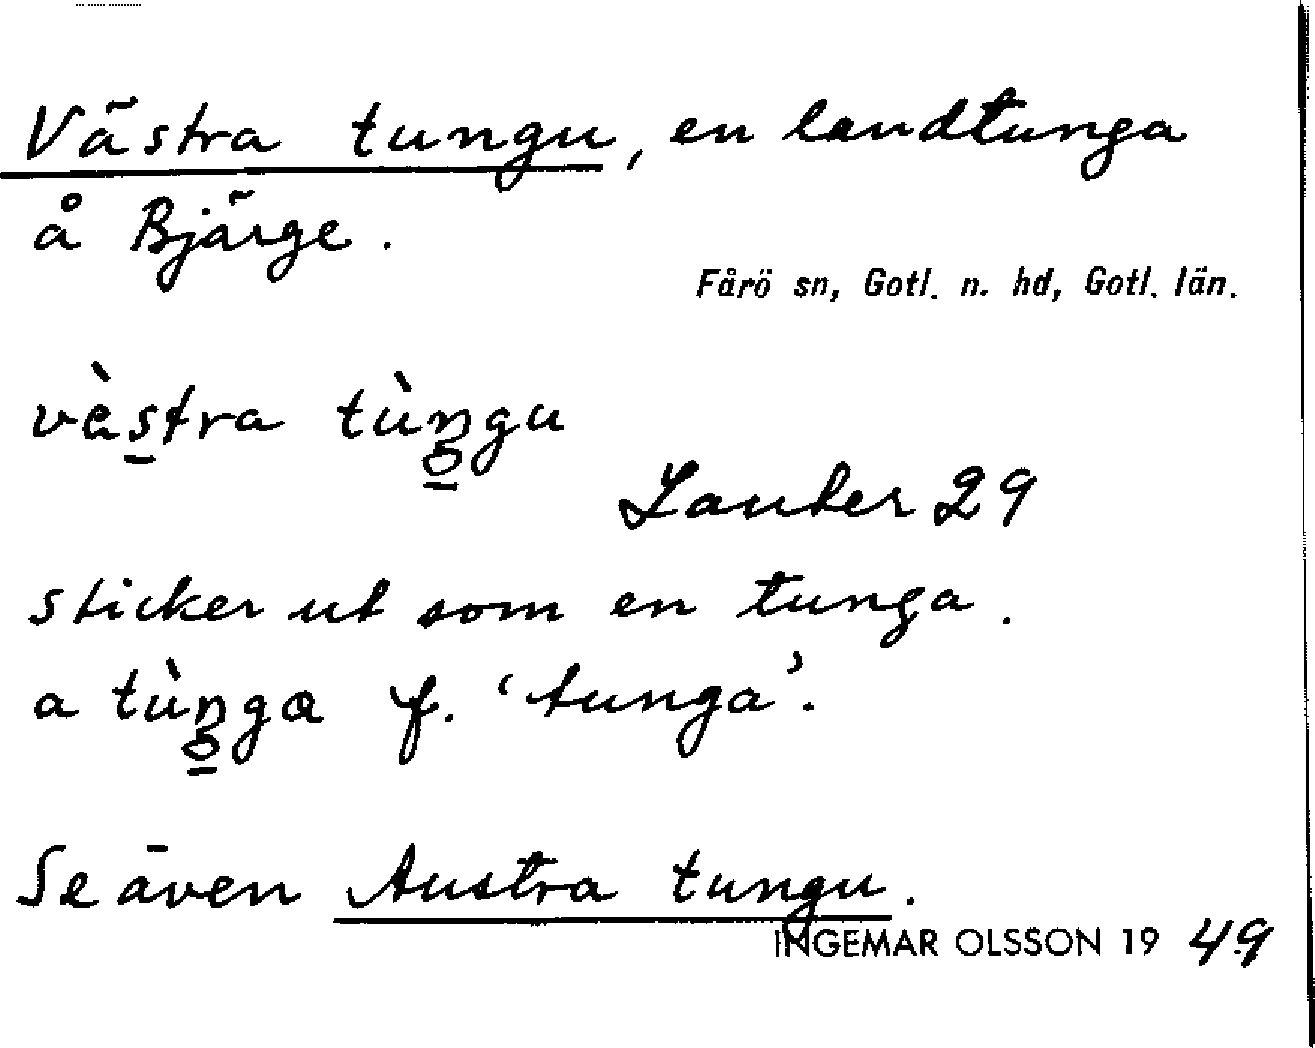 Västra tungu, en landtunga
å Bjärge.
Fårö sn, Gotl. n. hd, Gotl. län.
vèstra tùngu
Lauter 29
sticker ut som en tunga.
a tùnga f. 'tunga'.
Se även Austra tungu.
INGEMAR OLSSON 19 49